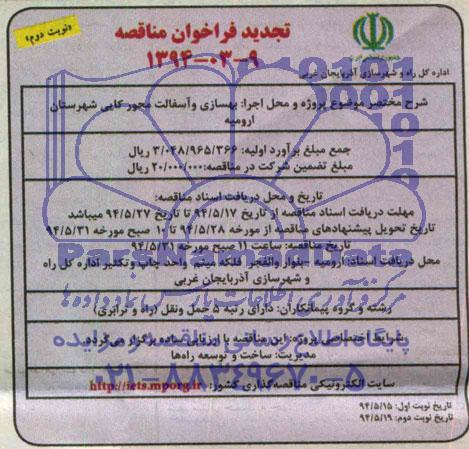 «نوبت دوم»
تجدید فراخوان مناقصه
۱۳۹۴-۰۳-۹
اداره کل راه و شهرسازی آذربایجان غربی
شرح مختصر موضوع پروژه و محل اجرا: بهسازی وآسفالت محور کایی شهرستان
ارومیه
جمع مبلغ برآورد اولیه: ۳/۰۴۸/۹۶۵/۳۶۶ ریال
مبلغ تضمین شرکت در مناقصه: ۲۰/۰۰۰/۰۰۰ ریال
تاریخ و محل دریافت اسناد مناقصه:
مهلت دریافت اسناد مناقصه از تاریخ ۹۴/۵/۱۷ تا تاریخ ۹۴/۵/۲۷ میباشد
تاریخ تحویل پیشنهادهای مناقصه از مورخه ۹۴/۵/۲۸ تا ۱۰ صبح مورخه ۹۴/۵/۳۱
تاریخ مناقصه: ساعت ۱۱ صبح مورخه ۹۴/۵/۳۱
محل دریافت اسناد: ارومیه -بلوار والفجر- فلکه میثم- واحد چاپ وتکثیر اداره کل راه
و شهرسازی آذربایجان غربی
رشته و گروه پیمانکاران: دارای رتبه ۵ حمل ونقل (راه و ترابری)
شرایط اختصاصی پروژه: این مناقصه با ارزیابی ساده برگزار می گردد.
مدیریت: ساخت و توسعه راه‌ها
سایت الکترونیکی مناقصه‌گذاری کشور: http://iets.mporg.ir
تاریخ نوبت اول: ۹۴/۵/۱۵
تاریخ نوبت دوم: ۹۴/۵/۱۹
ParsNamadData
مرکز فرآوری اطلاعات پارس نماد داده ها
پایگاه اطلاع رسانی مناقصه و مزایده
۰۲۱-۸۸۳۴۹۶۷۰-۵